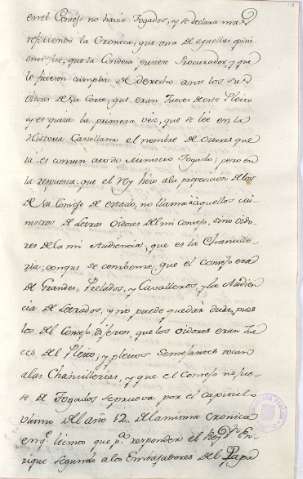 en el Consejo no havia Togados, y se declara mas
refiriendo la Cronica, que una de aquellas opini
ones fue, que la Condesa oviese Procurador, y que
le ficiesen cumplim. de derecho ante los sus
Oidores de su Corte, que eran Jueces de este Pleito
y es quiza la primera vez, que se lee en la
Historia Castellana el nombre de Oidores que
ia es comun a todo Ministro Togado; pero en
la respuesta, que el Rey hizo a la proposicion de los
de su Consejo de estado, no llama a aquellos Mi
nistros de Letras Oidores del mi Consejo, sino oido
res de la mi Audiencia, que es la Chancille
ria; conque se comprueva, que el Consejo era
de Grandes, Prelados, y Cavalleros, y la Audien
cia de Letrados, y no puede quedar duda, pues
los del Consejo dixeron, que los Oidores eran Jue
ces del Pleito, y pleitos semejantes tocan
a las Chancillerias, y que el Consejo no fue
se de Togados se prueva, por el capitulo
decimo del año 12 de la misma Cronica
en q. leemos que p. responder el Rey D. En
rique segundo a los Embajadores del Papa